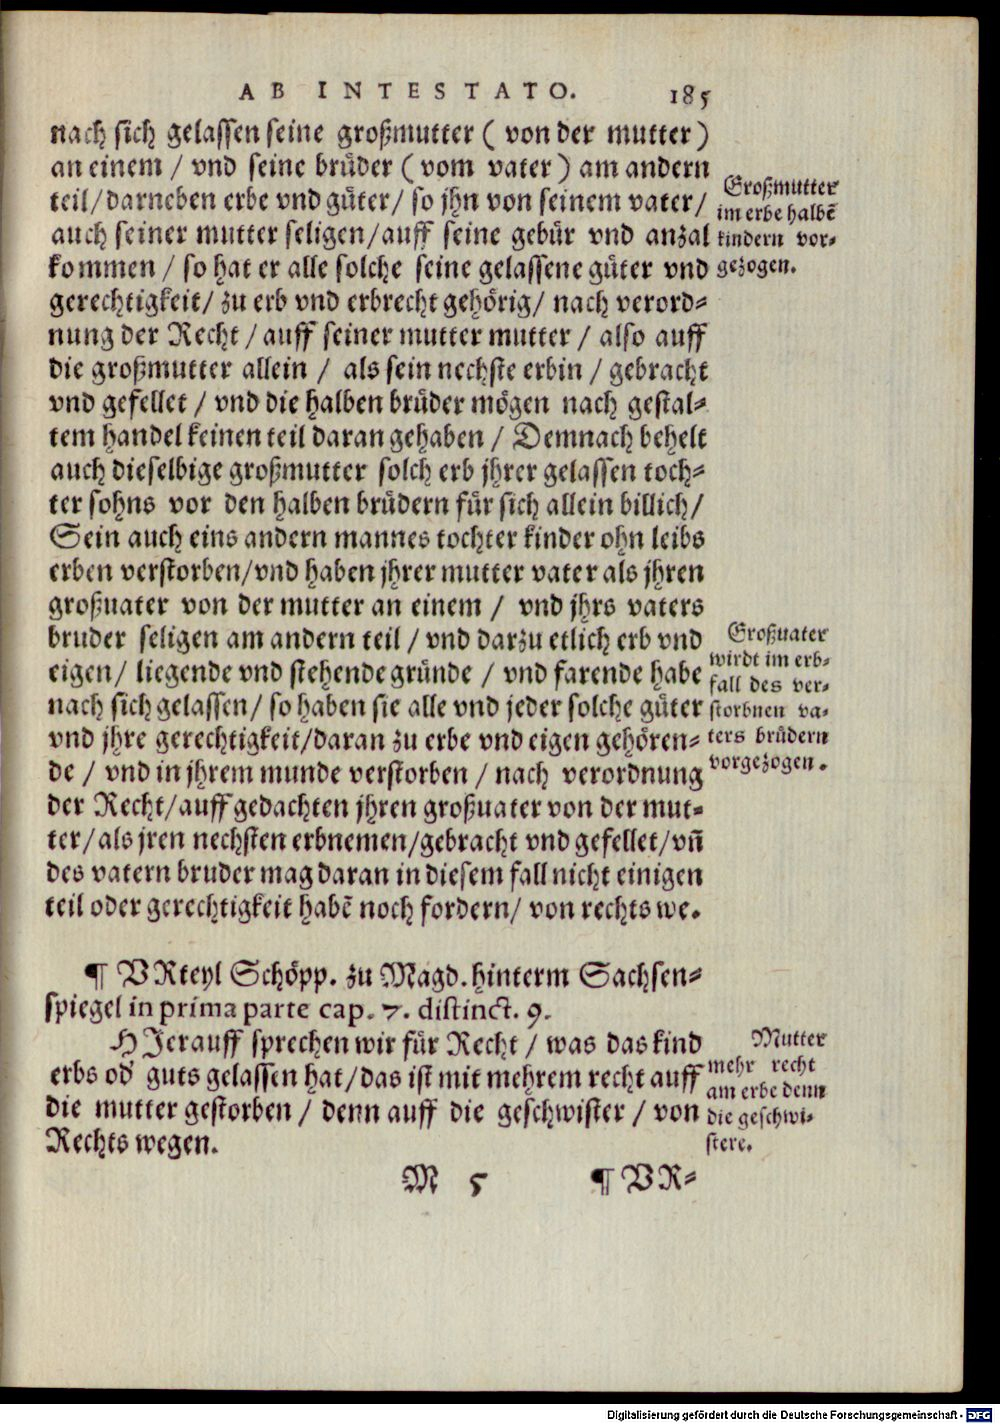 AB INTESTATO. 185
nach sich gelassen seine großmutter ( von der mutter )
an einem / vnd seine brüder ( vom vater ) am andern
teil / darneben erbe vnd güter / so jhn von seinem vater /
auch seiner mutter seligen / auff seine gebür vnd anzal
kommen / so hat er alle solche seine gelassene güter vnd
gerechtigkeit / zu erb vnd erbrecht gehörig / nach verord-
nung der Recht / auff seiner mutter mutter / also auff
die großmutter allein / als sein nechste erbin / gebracht
vnd gefellet / vnd die halben brüder mögen nach gestal-
tem handel keinen teil daran gehaben / Demnach behelt
auch dieselbige großmutter solch erb jhrer gelassen toch-
ter sohns vor den halben brüdern für sich allein billich /
Sein auch eins andern mannes tochter kinder ohn leibs
erben verstorben / vnd haben jhrer mutter vater als jhren
großuater von der mutter an einem / vnd jhrs vaters
bruder seligen am andern teil / vnd darzu etlich erb vnd
eigen / liegende vnd stehende gründe / vnd farende habe
nach sich gelassen / so haben sie alle vnd jeder solche güter
vnd jhre gerechtigkeit / daran zu erbe vnd eigen gehören-
de / vnd in jhrem munde verstorben / nach verordnung
der Recht / auff gedachten jhren großuater von der mut-
ter / als jren nechsten erbnemen / gebracht vnd gefellet / vñ
des vatern bruder mag daran in diesem fall nicht einigen
teil oder gerechtigkeit habẽ noch fordern / von rechts we.
Großmutter
im erbe halbẽ
kindern vor-
gezogen.
Großuater
wirdt im erb-
fall des ver-
storbnen va-
ters brüdern
vorgezogen.
¶ VRteyl Schöpp. zu Magd. hinterm Sachsen-
spiegel in prima parte cap. 7. distinct. 9.
HJerauff sprechen wir für Recht / was das kind
erbs oď guts gelassen hat / das ist mit mehrem recht auff
die mutter gestorben / denn auff die geschwister / von
Rechts wegen.
Mutter
mehr recht
am erbe denn
die geschwi-
stere.
M 5 ¶ VR-
Digitalisierung gefördert durch die Deutsche Forschungsgemeinschaft - DFG